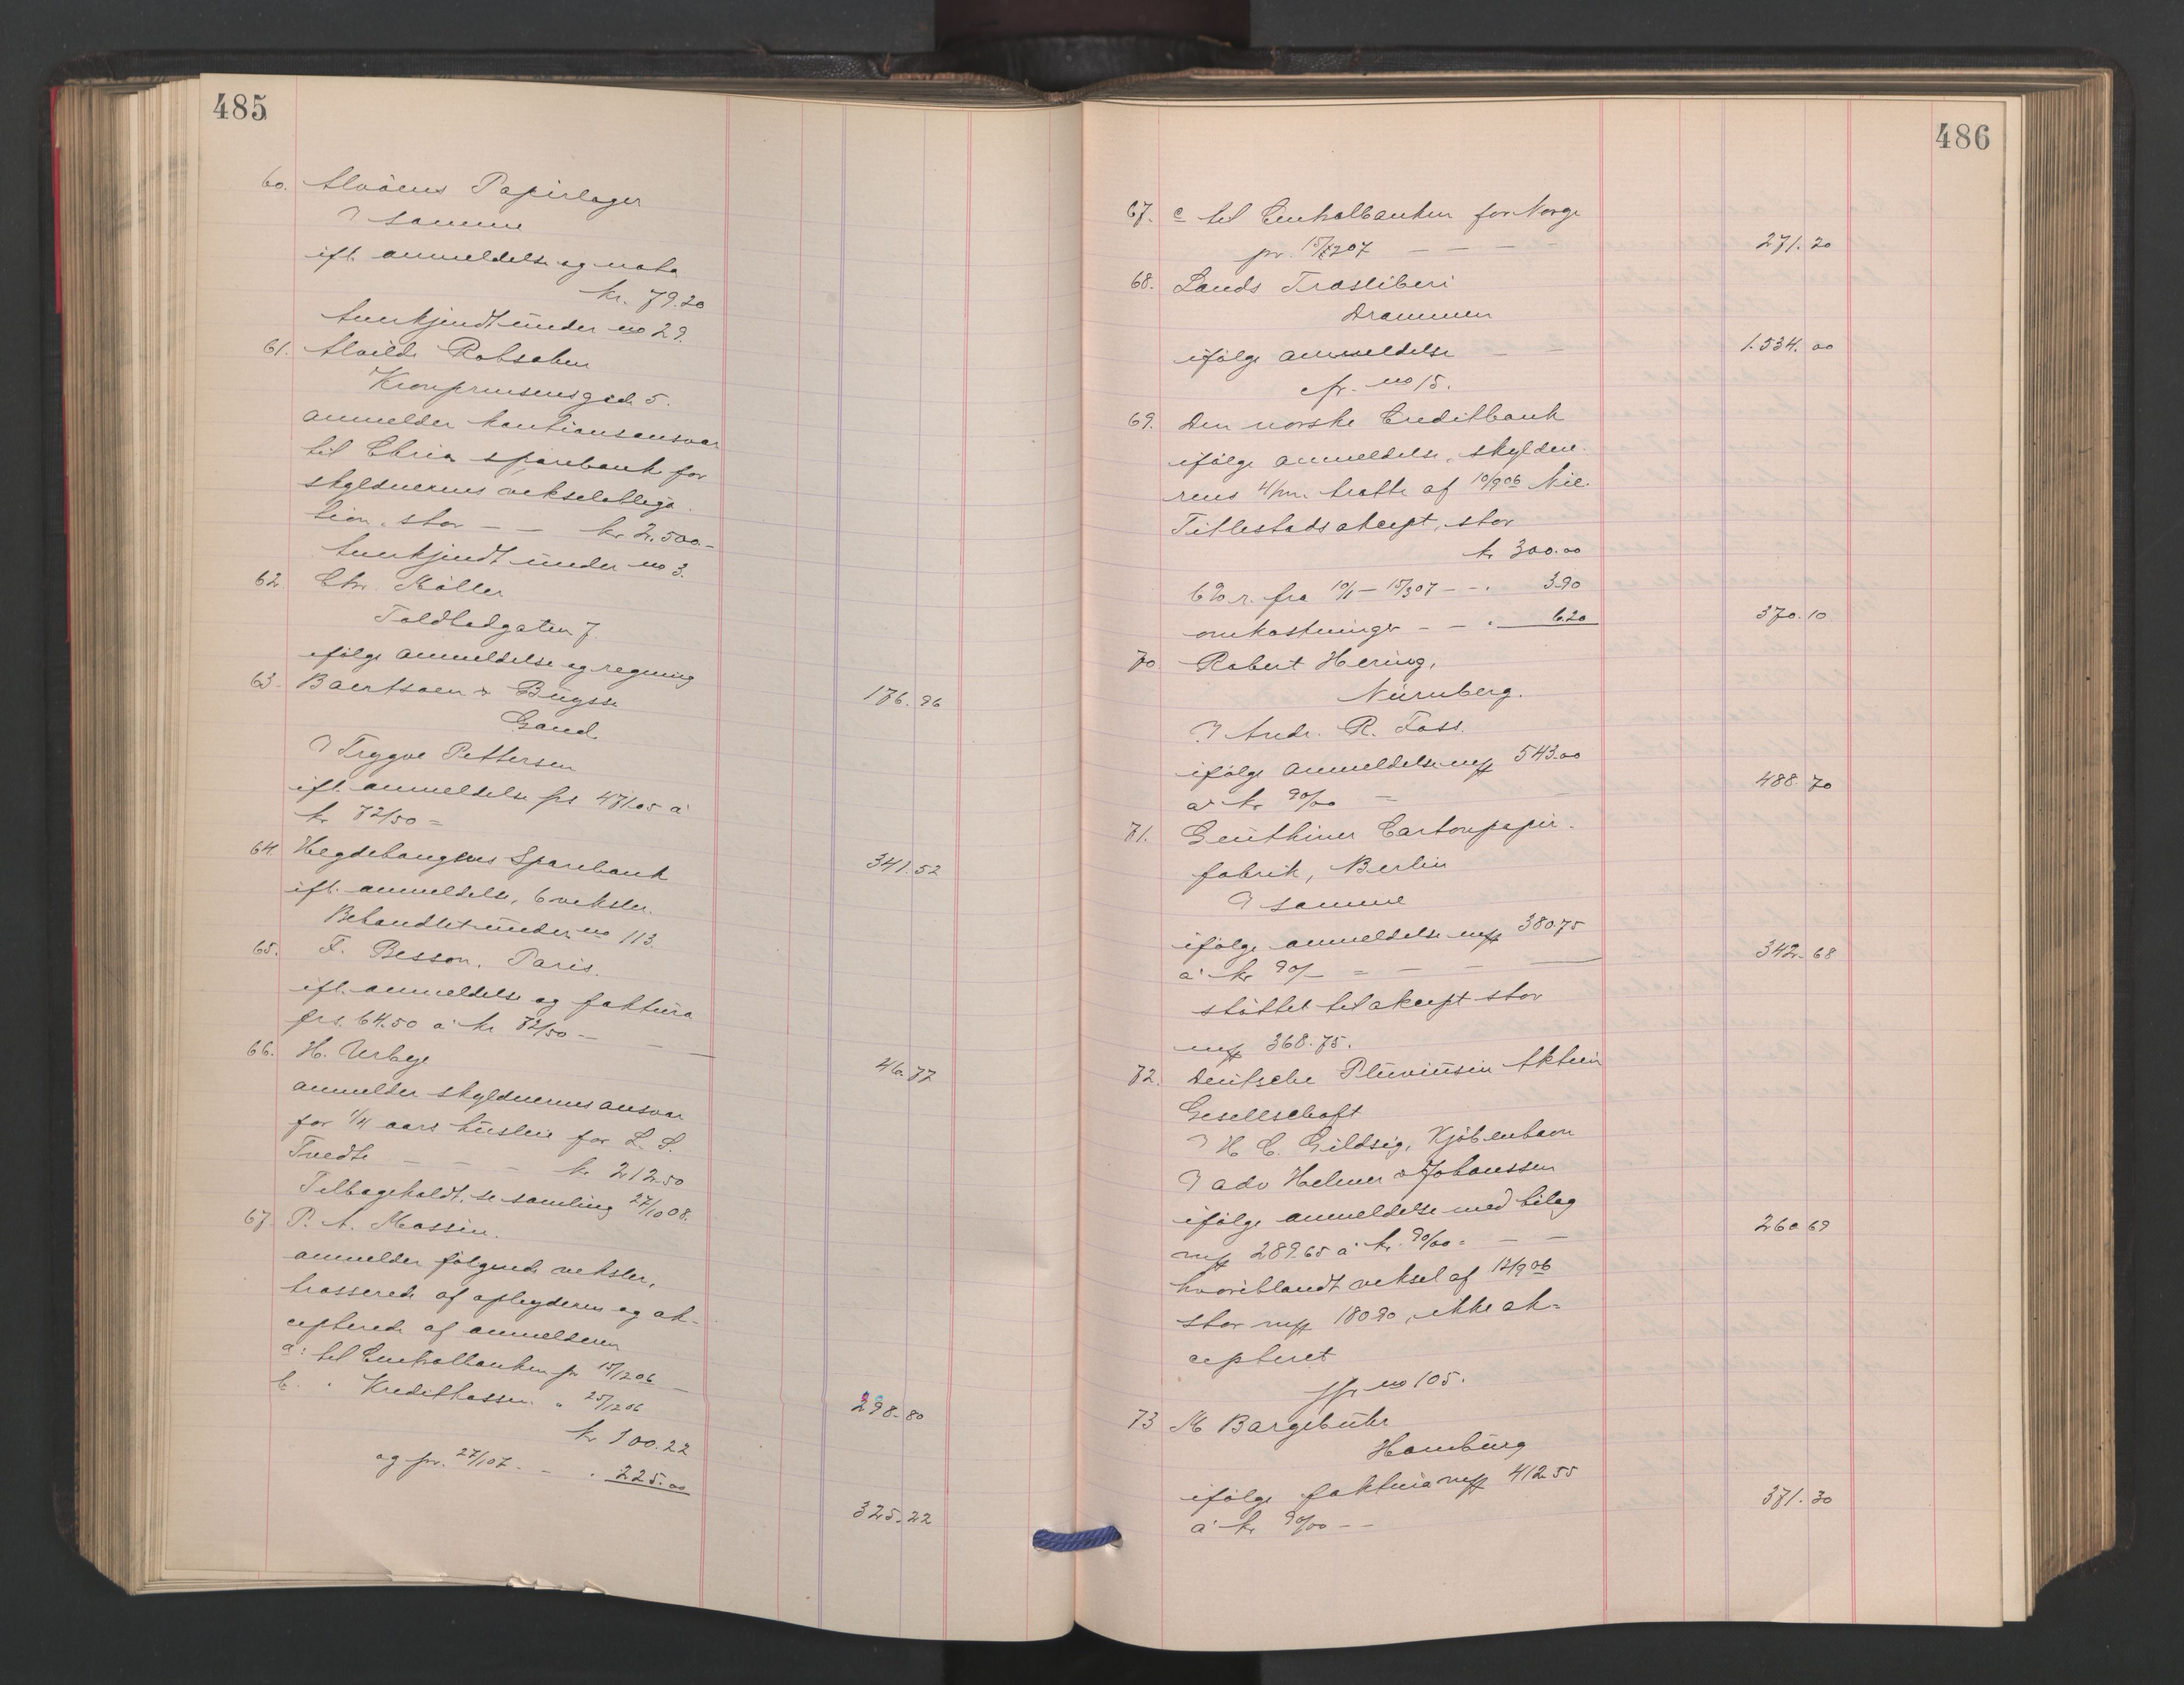 485
60. Alvöens Papirlager
samme
ifl. anmeldelse og nota
kr. 79.20
Anerkjendt under no 29.
61. Alvilde Robsahm
Kronprinsensgade 5.
anmelder kautionsansvar
til Chria sparebank for
skyldnerens vekselobliga-
tion, stor — — kr 2.500.-
Anerkjendt under no 3.
62. Chr. Möller
Toldbodgaten 7
ifölge anmeldelse og regning
176.96
63. Baertsoen & Buysse
Gand.
Trygve Pettersen
ifl. anmeldelse frs 471.05 à
kr 72/50 =
341.52
64. Hegdehaugens Sparebank
ifl. anmeldelse, 6 veksler.
Behandlet under no 113.
65. F. Besson. Paris.
ifl. anmeldelse og faktura
frs. 64.50 à kr 72/50 — — —
46.77
66. H. Urbye
anmelder skyldnerens ansvar
for 1/4 aars husleie for L. S.
Tvedte — — — kr 212.50
Tilbageholdt, se samling 27/10 08.
67. P. A. Massin.
anmelder fölgende veksler,
trasserede af opbyderen og ak-
cepterede af anmelderen
a: til Centralbanken pr 15/12 06 —
298.80
b. " Kreditkassen " 25/12 06
kr 100.22
og pr. 27/1 07 - — " 225.00
325.22
486
67. c til Centralbanken for Norge
pr. 15/2 07 — — — —
271.20
68. Lands Trasliberi
Drammen
ifölge anmeldelse — —
1.534.00
cfr. no 15.
69. Den norske Creditbank
ifölge anmeldelse, skyldne-
rens 4/mn. tratte af 10/9 06 Nic.
Titlestads akcept, stor
kr 300.00
6% r. fra 10/1 — 15/3 07 — - . 3.90
omkostninger — — . 6.20
370.10
70 Robert Hering,
Nürnberg.
Andr. R. Foss.
ifölge anmeldelse mk 543.00
à kr 90/00 — —
488.70
71. Genthiner Cartonpapir-
fabrik, Berlin
samme
ifölge anmeldelse mk 380.75
à kr 90/- = — — —
342.68
stöttet til akcept stor
mk 368.75.
72. Deutsche Pluviusin Aktien
Gesellschaft
H C. Gildsig, Kjöbenhavn
adv Helmer & Johanssen
ifölge anmeldelse med bilag
mk 289.65 à kr. 90/00 = — —
260.69
hvoriblandt veksel af 12/9 06
stor mk 180.90, ikke ak-
cepteret
jfr no 105.
73 M Bargebuhr
Hamburg
ifölge faktura mk 412.55
à kr 90/00 — —
371.30